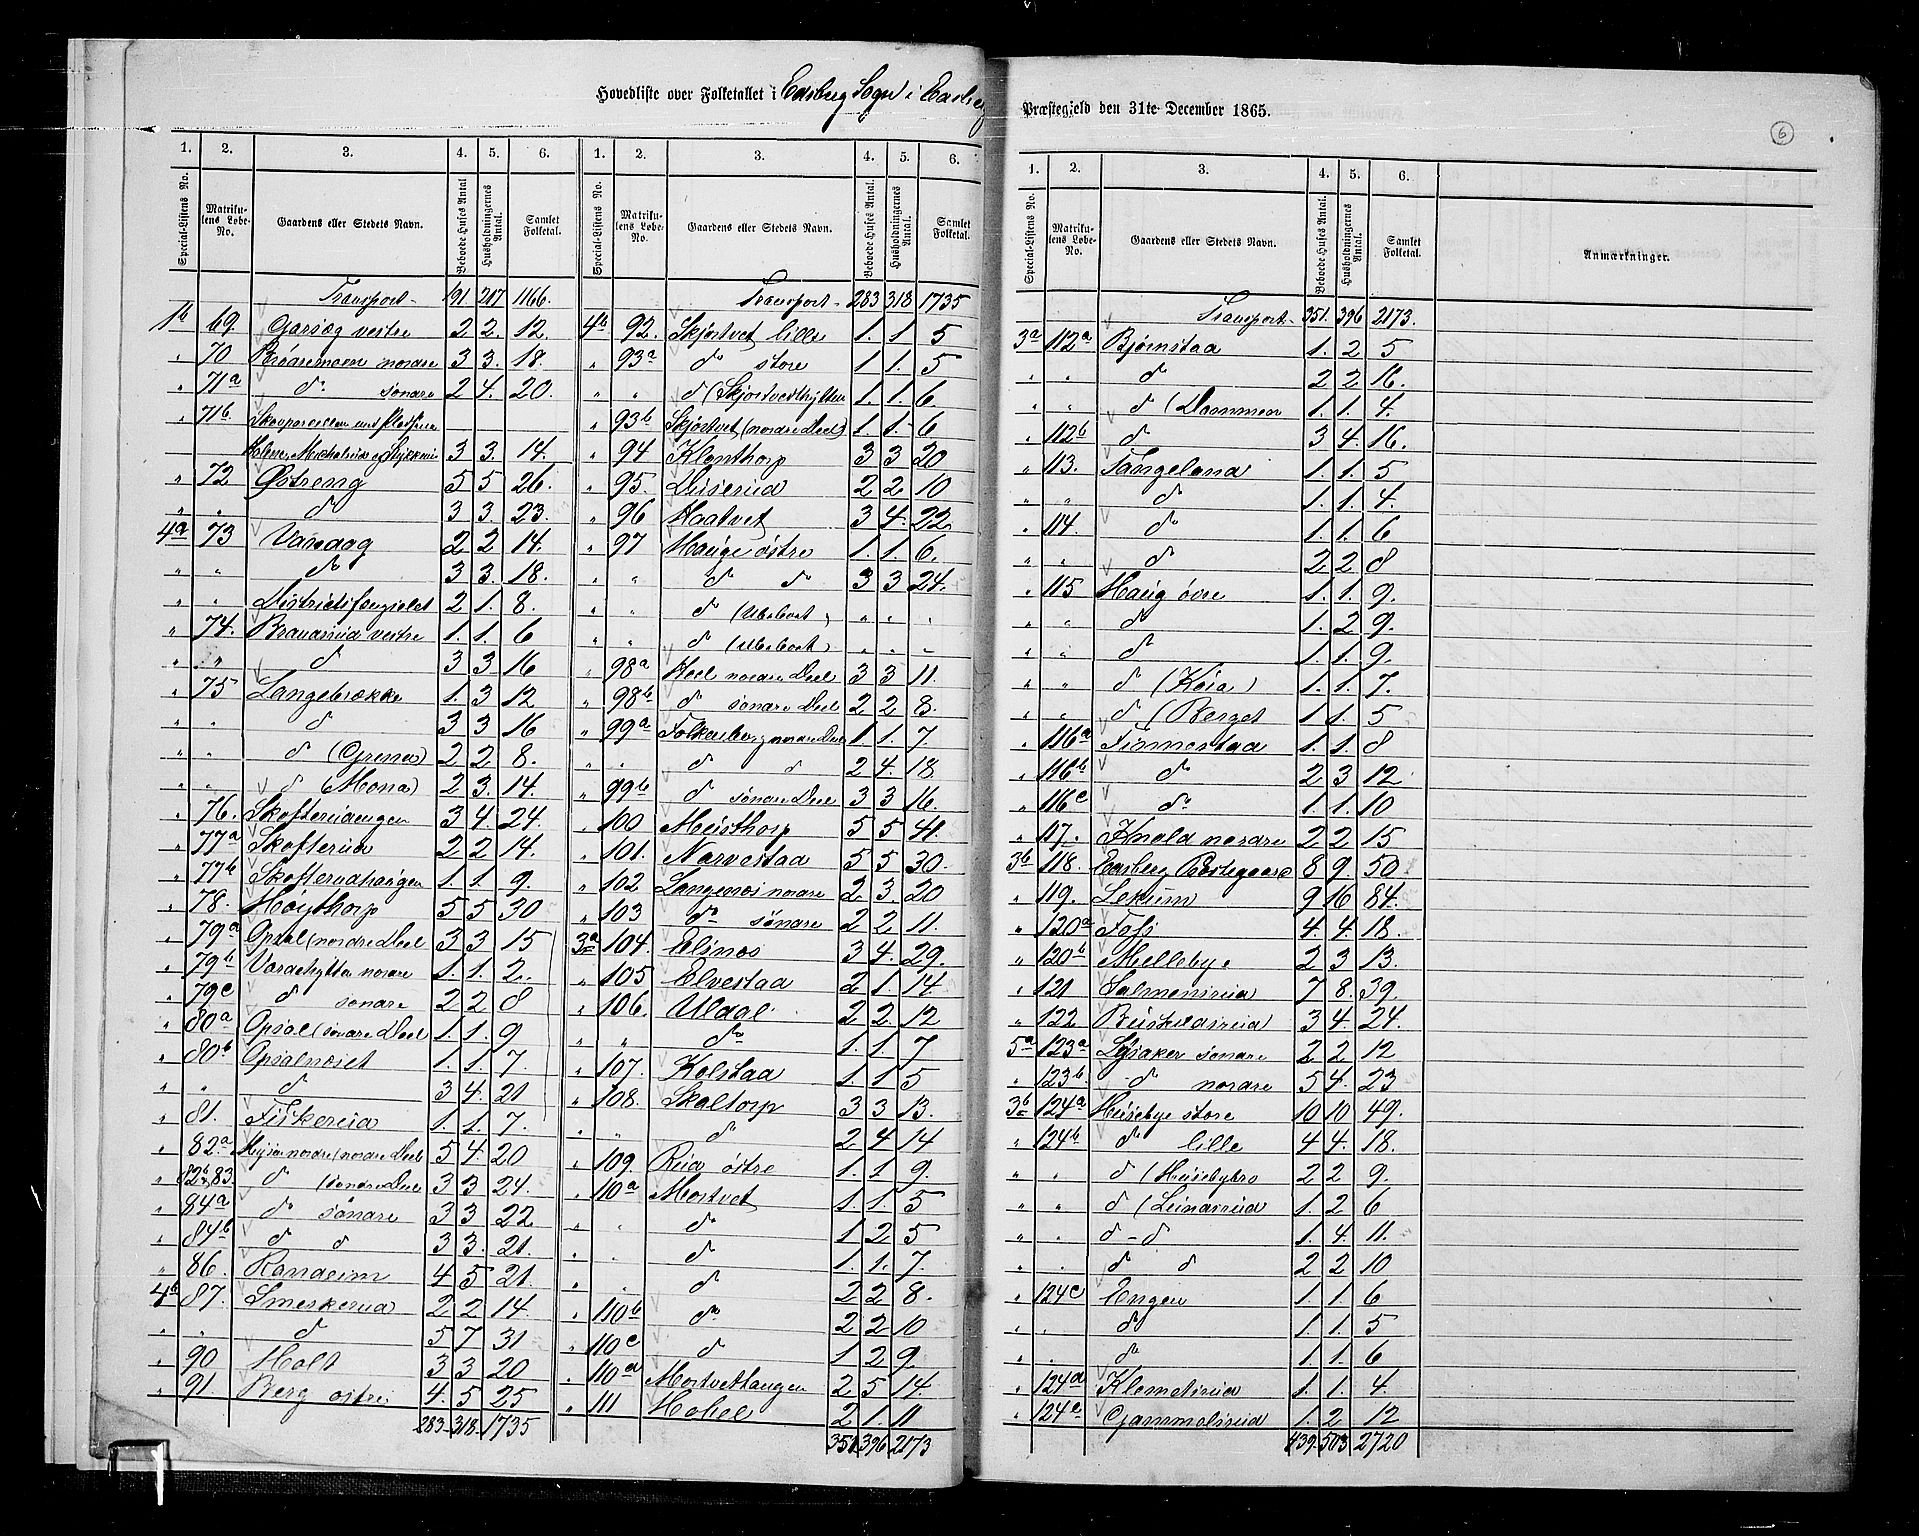 Hovedliste over Folketallet i Eidsberg Sogn i Eidsberg
Præstegjeld den 31te December 1865.
6
1. 2. 3. 4. 5. 6.
Special-Listens No. Matrikulens Løbe-No. Gaardens eller Stedets Navn. Beboede Huses Antal Husholdningernes Antal. Samlet Folketal.
Transport 191 217 1166.
1b 69. Garsæg vestre 2 2. 12.
" 70 nordre 3 3. 18.
" 71a do søndre 2 4. 20.
" 71b
3 3. 14.
" 72 Østreng 5 5 26.
" " do 3 3. 23.
4a 73 2 2 14.
" " do 3 3. 18.
" " Districtsfængslet 2 1. 8.
" 74. vestre 1. 1. 6
" " do 3 3 16
" 75 Langebrække 1. 3 12
" " do 3 3 16
" " do (Grina) 2 2 8.
" " do (Mona) 2 3. 14.
" 76. Skofterudengen 3 4. 24.
" 77a Skofterud 2 2 14.
" 77b Skofterudhaugen 1. 1. 9.
" 78. Høytorp 5 5 30
" 79a Opsal (nordre Deel 3 3 15
" 79b nordre 1. 1. 2.
" 79c do søndre 2 2 8
" 80a Opsal (søndre Deel 1. 1. 9
" 80b Opsalnæset 1. 1. 7.
" " do 3 4. 21
" 81. Fiskerud 1. 1. 7.
" 82a Mysen nordre (nordre Deel 5 4. 20
82b, 83. do (søndre Deel 3 3 24.
" 84a do søndre 3 3 22
" 84b do do 3 3. 21.
" 86. Ramdeim 4 5 21.
4b 87. Smerkerud 2 2 14.
" " do 5 7 31
" 90 Holt 3 3 20
" 91 Berg østre 4. 5 25
283 318 1735
1. 2. 3. 4. 5. 6.
Special-Listens No. Matrikulens Løbe-No. Gaardens eller Stedets Navn. Beboede Huses Antal. Husholdningernes Antal. Samlet Folketal.
Transport 283 318 1735
4b 92. Skjortvet lille 1. 1. 5
" 93a do store 1 1. 5
" " do (Skjortvedthytten 1. 1. 6.
" 93b Skjørtvet (nordre Deel) 1. 1. 6
" 94 Klonthorp 3 3 20
" 95. Duserud 2 2 10
" 96 Haatvet 3 4. 22
" 97 Hauge østre 1. 1. 6.
" " do do 3 3 24.
" " do (Ubeboet) " " "
" " do (Ubeboet) " " "
" 98a Heel nordre Deel 3 3 11.
" 98b do søndre Deel 2 2 8.
" 99a Folkenborg nordre Deel 1. 1. 7.
" " do do 2 4. 18
" 99b do søndre Deel 3 3 16.
" 100 Musthorp 5 5 41.
" 101. Narvestad 5 5 30.
" 102 Langenæs nordre 2 3. 20
" 103 do søndre 2 2 11.
3a 104. Elinæs 3 4. 29.
" 105 Elvestad 2 1. 14.
" 106. Uldal 2 2. 12
" " do 1. 1. 7
" 107. Kolstad 1. 1 5
" 108. Skaltorp 3 3 13.
" " do 2 4 14
" 109. Rud østre 1. 1. 9.
" 110a Mostvet 1. 1. 5
" " do 1 2 5
" " do 1 1. 7.
" " do 2 2 8.
" 110b do 2 2 10
" 110c do 1 2 9.
" 110d Mostvethaugen 2 5 14.
" 111 Hobel 2 1. 11
351 396 2173
1. 2. 3. 4. 5. 6.
Special-Listens No. Matrikulens Løbe-No. Gaardens eller Stedets Navn. Beboede Huses Antal. Husholdningernes Antal. Samlet Folketal. Anmærkninger.
Transport 351. 396 2173.
3a 112a Bjørnstad 1. 2 5
" " do 2 2 16.
" " do (Dammen 1. 1. 4.
" 112b do 3 4. 16.
" 113. Tangeland 1. 1. 5
" " do 1. 1. 4.
" 114. do 1. 1. 6
" " do 2 2 8
" 115 Haug øvre 1. 1. 9.
" " do 1. 2 9.
" " do 1 1. 9.
" " do (Køia) 1. 1. 7.
" " do (Berget 1 1. 5
" 116a Finnestad 1. 1. 8
" 116b do 2 3 12
" 116c do 1. 1. 10
" 117. Knold nordre 2 2 15
3b 118. Eidsberg Præstegaard 8 9. 50
" 119. Lekum 9 16 84.
" 120a Foss 4. 4. 18.
" 120b Mellebye 2 3 13.
" 121 Salmonsrud 7 8. 39.
" 122 Buskuldsrud 3 4. 24.
5a 123a Lysaker søndre 2 2 12
" 123b. do nordre 5 4. 23
3b 124a Husebye store 10 10 49.
" 124b do lille 4 4. 18.
" " do (Husebybro 2 2 9.
" " do (Lunderud 1. 2 6
" " do - do 1. 4. 11.
" " do do 2 2 10
" 124c Engen 1. 1. 6
" " do 1. 1. 5
" " do 1 1. 6
" 124d Klemetsrud 1. 1. 4.
" 124e Gammelsrud 1. 2 12
439. 503 2720